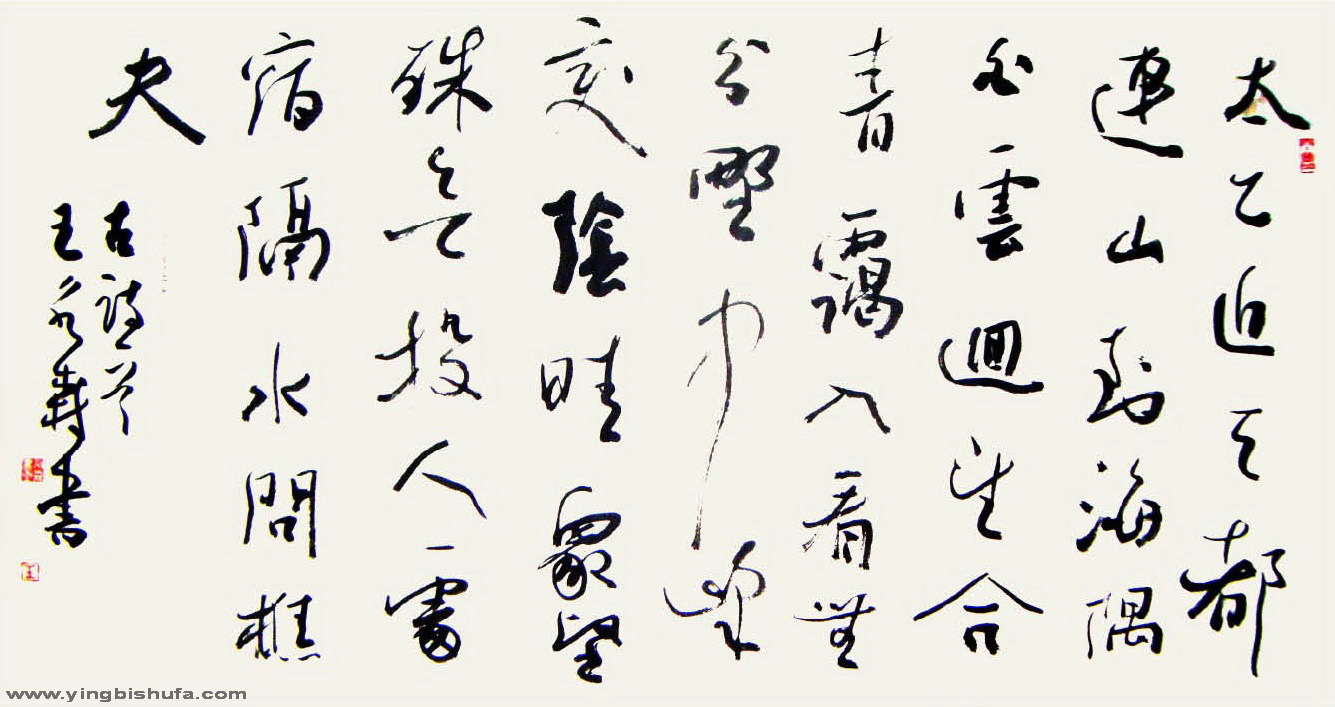 太乙近天都
連山到海隅
白雲迴望合
青靄入看無
分野中峰
變陰晴眾壑
殊欲投人處
宿隔水問樵
夫
古詩一首
王 書
www.yingbishufa.com